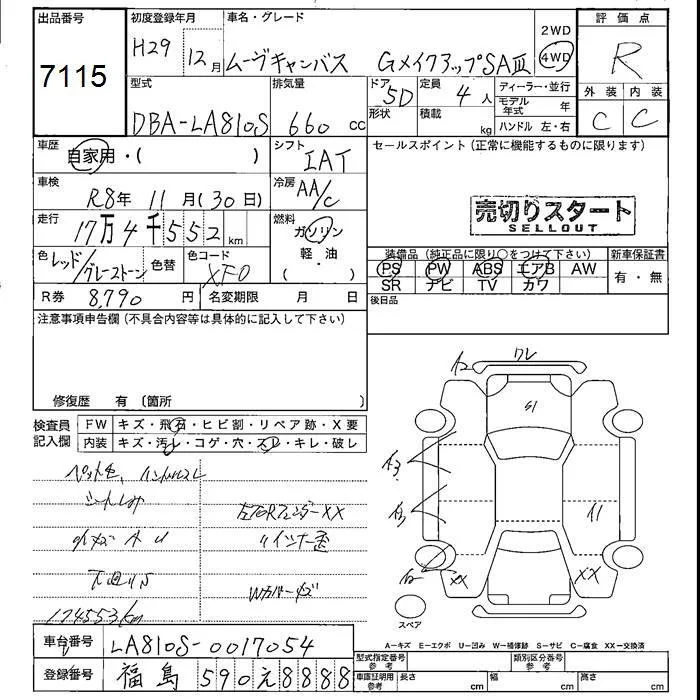 出品番号
7115
初度登録年月
H29 12月
車名・グレード
ムーヴキャンバス GメイクアップSAⅢ
2WD
4WD
評価点
R
外装 内装
C C
型式
DBA-LA810S
排気量
660 cc
ドア
5D
形状
定員
4人
積載
kg
ディーラー・並行
モデル年式 年
ハンドル 左・右
車歴
自家用・( )
シフト
IAT
セールスポイント (正常に機能するものに限ります)
車検
R8年 11月(30日)
冷房
AA/C
売切りスタート
SELLOUT
走行
17万4千552km
燃料
ガソリン
・
軽・油
( )
色
レッド/グレーストーン
色替
色コード
XF0
装備品 (純正品に限り○をつけて下さい)
PS PW ABS エアB AW
SR ナビ TV カワ
新車保証書
有・無
R券 8,790 円
名変期限 月 日
後日品
注意事項申告欄 (不具合内容等は具体的に記入して下さい)
修復歴 有 (箇所 )
検査員記入欄
FW キズ・飛石・ヒビ割・リペア跡・X要
内装 キズ・汚レ・コゲ・穴・スレ・キレ・破レ
ペット毛、ハンドルスレ
シートしみ
左右RフェンダーXX
〃インナー歪
下廻りS
Wカバーキズ
174553km
ワレ
S1
XX
XX
スペア
A=キズ E=エクボ U=凹み W=補修跡 S=サビ C=腐食 XX=交換済
車台番号
LA810S-0017054
登録番号
福島 590 え 8888
型式指定番号
参考
類別区分番号
参考
車庫証明用
参考
長さ cm
幅 cm
高さ cm